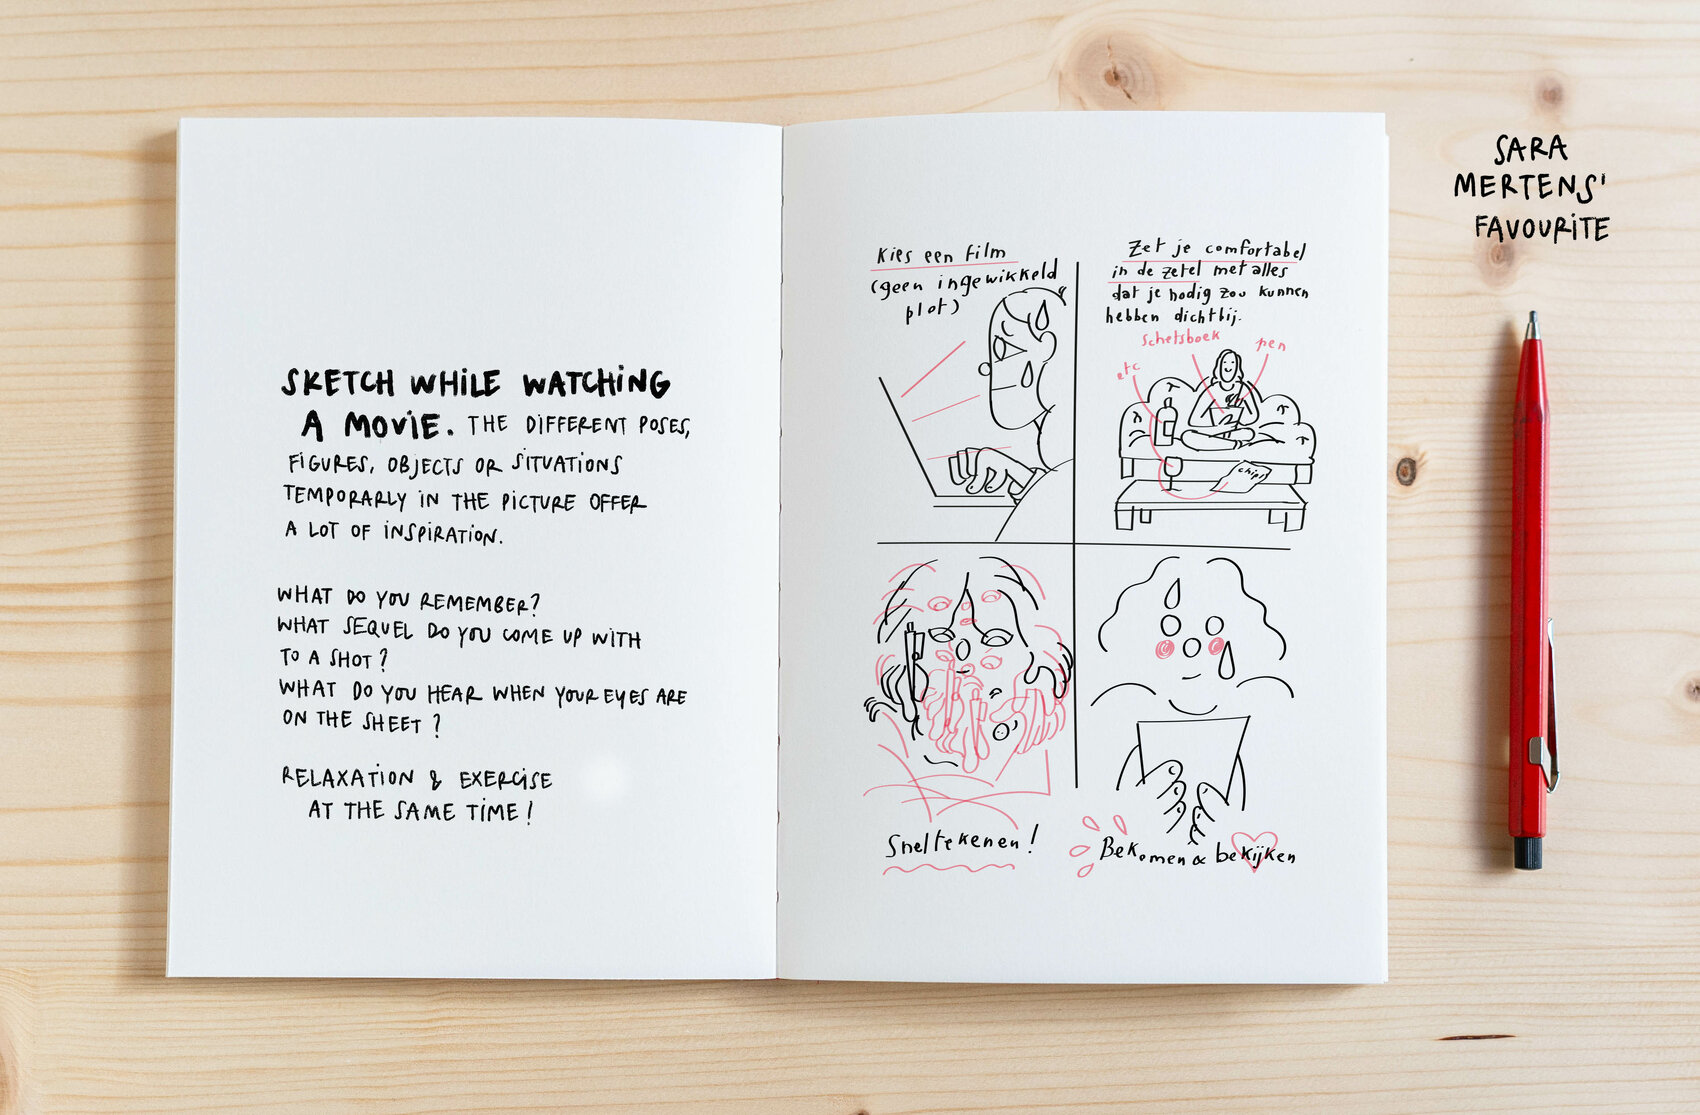 SKETCH WHILE WATCHING
A MOVIE. THE DIFFERENT POSES,
FIGURES, OBJECTS OR SITUATIONS
TEMPORARLY IN THE PICTURE OFFER
A LOT OF INSPIRATION.
WHAT DO YOU REMEMBER?
WHAT SEQUEL DO YOU COME UP WITH
TO A SHOT?
WHAT DO YOU HEAR WHEN YOUR EYES ARE
ON THE SHEET?
RELAXATION & EXERCISE
AT THE SAME TIME!
Kies een film
(geen ingewikkeld
plot)
Zet je comfortabel
in de zetel met alles
dat je nodig zou kunnen
hebben dichtbij.
schetsboek
pen
etc
chips
Sneltekenen!
Bekomen & bekijken
SARA
MERTENS'
FAVOURITE